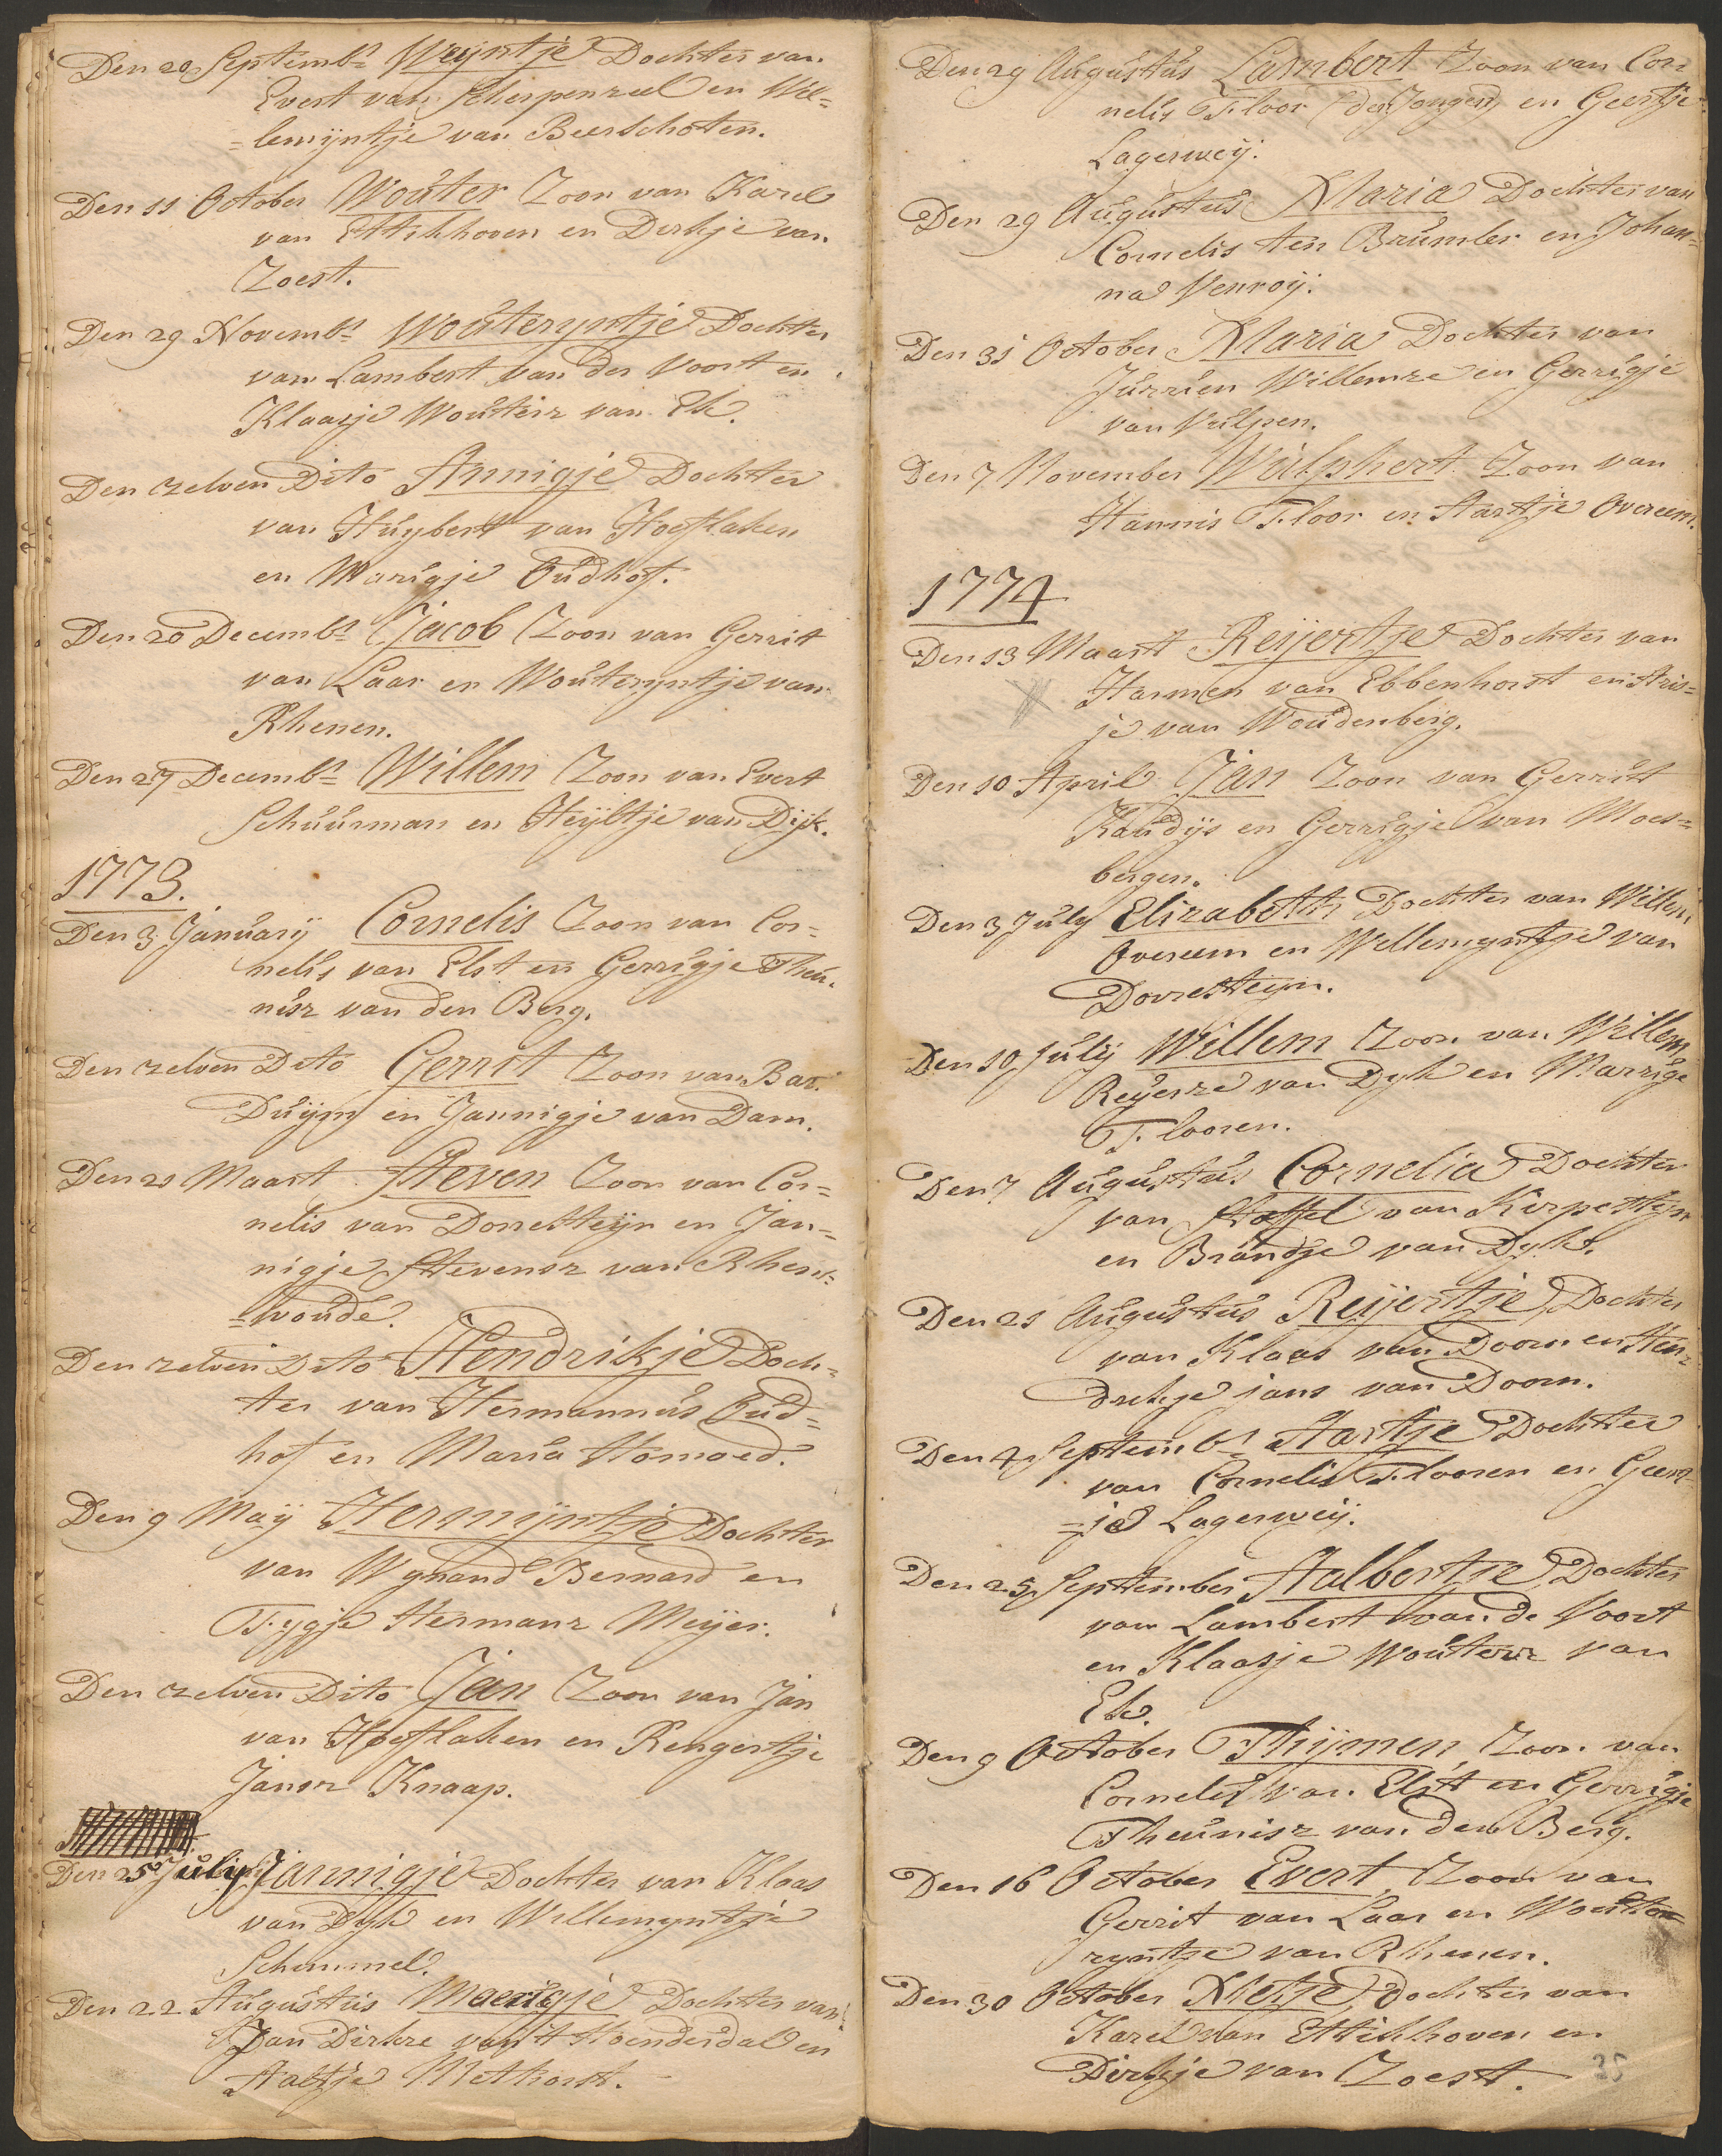 Den 20 Septembr Weyntje Dochter van
Evert van Scherpenzeel en Wil=
=lemijntje van Beerschoten.
Den 11 October Wouter Zoon van Karel
van Ettikhoven en Dirkje van
Zoest.
Den 29 Novembr Wouteryntje Dochter
van Lambert van der Voort en
Klaasje Wouterz van Ek.
Den zelven Dito Annigje Dochter
van Huybert van Hoeflaken
en Marigje Oudhof.
Den 20 Decembr Jacob Zoon van Gerrit
van Laar en Wouteryntje van
Rhenen.
Den 27 Decembr Willem Zoon van Evert
Schuurman en Heyltje van Dijk.
1773.
Den 3 January Cornelis Zoon van Cor=
nelis van Elst en Gerrigje Theu=
nisz van den Berg.
Den zelven Dito Gerrit Zoon van Bar.
Duijm en Jannigje van Dam.
Den 21 Maart Steven Zoon van Cor=
nelis van Dorresteijn en Jan=
nigje Stevensz van Rhens=
=woude.
Den zelven Dito Hendrikje Doch=
ter van Hermannus Oud=
hof en Maria Homoed.
Den 9 Maij Hermijntje Dochter
van Wynand Bernard en
Fygje Hermanz Meijer.
Den zelven Dito Jan Zoon van Jan
van Hoeflaken en Rengertje
Jansz Knaap.
Den 25 July Jannigje Dochter van Klaas
van Dyk en Willemyntje
Schimmel.
Den 22 Augustus Maerigje Dochter van
Jan Dirkze van 't Hoenderdal en
Aaltje Methorst.
Den 29 Augustus Lambert Zoon van Cor
nelis Floor (de Jonge) en Geertje
Lagerweij.
Den 29 Augustus Maria Dochter van
Cornelis ten Brumler en Johan=
na Venroij.
Den 31 October Maria Dochter van
Jurrien Willemze en Gerrigje
van Vulpen.
Den 7 November Wulphert Zoon van
Hannis Floor en Aartje Overeem.
1774
Den 13 Maart Reijertje Dochter van
Harmen van Ebbenhorst en Aris=
je van Woudenberg.
Den 10 April Jan Zoon van Gerrit
Kaudijs en Gerrigje van Moes=
bergen.
Den 3 July Elizabeth Dochter van Willem
Overeem en Willemyntje van
Dorresteijn.
Den 10 July Willem Zoon van Willem
Reijerze van Dyk en Marrigje
Flooren.
Den 7 Augustus Cornelia Dochter
van Stoffel van Kerpesteyn
en Brandje van Dyk.
Den 21 Augustus Reijertje Dochter
van Klaas van Doorn en Hen=
drikje jans van Doorn.
Den 4 Septembr Aartje Dochter
van Cornelis Flooren en Geert=
=je Lagerweij.
Den 25 September Aalbertje Dochter
van Lambert van de Voort
en Klaasje Wouterz van
Ek.
Den 9 October Thijmen Zoon van
Cornelis van Elst en Gerrigje
Theunisz van den Berg.
Den 16 October Evert Zoon van
Gerrit van Laar en Woute=
ryntje van Rhenen.
Den 30 October Metje Dochter van
Karel van Ettikhoven en
Dirkje van Zoest.
35